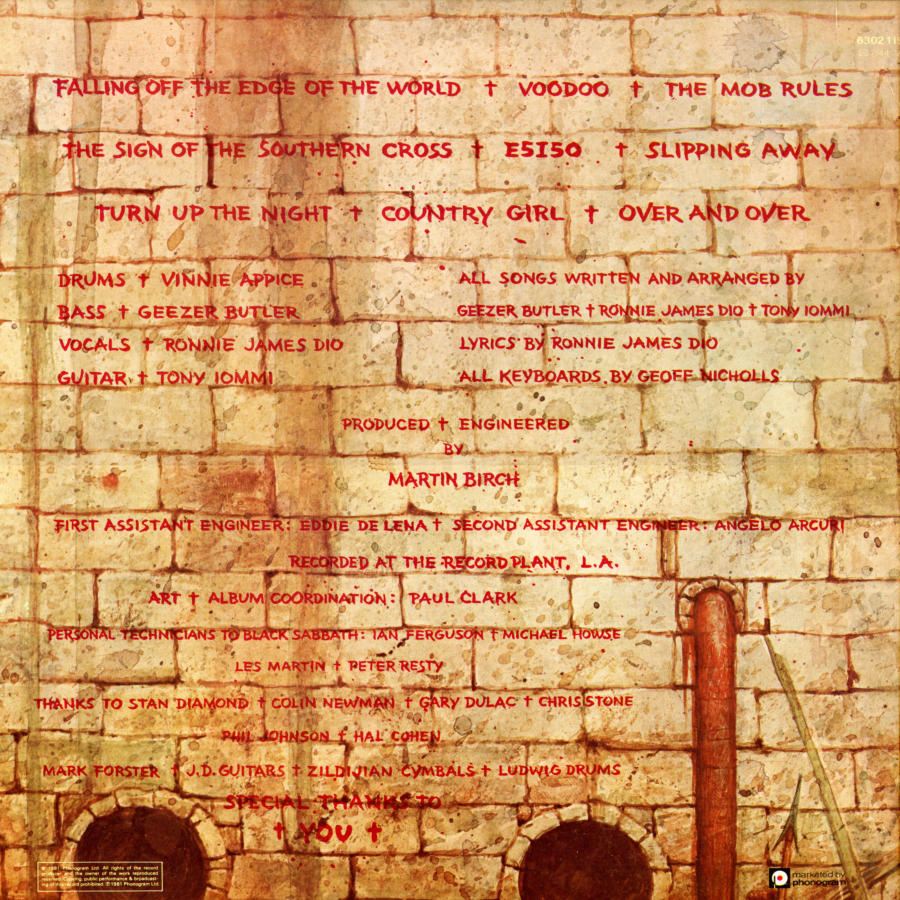 6302 11
FALLING OFF THE EDGE OF THE WORLD † VOODOO † THE MOB RULES
THE SIGN OF THE SOUTHERN CROSS † E5150 † SLIPPING AWAY
TURN UP THE NIGHT † COUNTRY GIRL † OVER AND OVER
DRUMS † VINNIE APPICE
BASS † GEEZER BUTLER
VOCALS † RONNIE JAMES DIO
GUITAR † TONY IOMMI
ALL SONGS WRITTEN AND ARRANGED BY
GEEZER BUTLER † RONNIE JAMES DIO † TONY IOMMI
LYRICS BY RONNIE JAMES DIO
ALL KEYBOARDS BY GEOFF NICHOLLS
PRODUCED † ENGINEERED
BY
MARTIN BIRCH
FIRST ASSISTANT ENGINEER: EDDIE DE LENA † SECOND ASSISTANT ENGINEER: ANGELO ARCURI
RECORDED AT THE RECORD PLANT, L.A.
ART † ALBUM COORDINATION: PAUL CLARK
PERSONAL TECHNICIANS TO BLACK SABBATH: IAN FERGUSON † MICHAEL HOWSE
LES MARTIN † PETER RESTY
THANKS TO STAN DIAMOND † COLIN NEWMAN † GARY DULAC † CHRIS STONE
PHIL JOHNSON † HAL COHEN
MARK FORSTER † J.D. GUITARS † ZILDIJIAN CYMBALS † LUDWIG DRUMS
SPECIAL THANKS TO
† YOU †
℗ 1981 Phonogram Ltd. All rights of the record
producer and the owner of the work reproduced
reserved. Copying, public performance & broadcast-
ing of this record prohibited. © 1981 Phonogram Ltd.
marketed by
phonogram